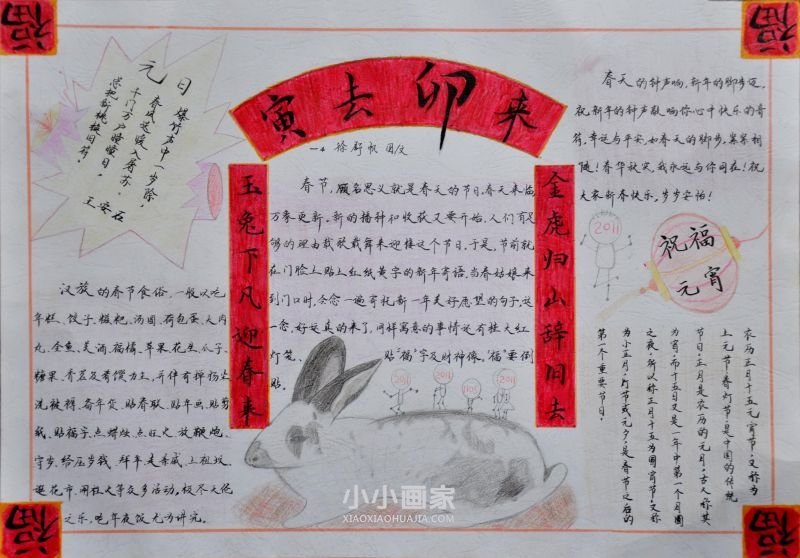 福
福
寅去卯来
一4 徐舒帆 图/文
元日
爆竹声中一岁除,
春风送暖入屠苏。
千门万户曈曈日,
总把新桃换旧符!
王安石
春天的钟声响,新年的脚步迈,
祝新年的钟声敲响你心中快乐的音
符,幸运与平安,如春天的脚步,紧紧相
随!春华秋实,我永远与你同在!祝
大家新春快乐,岁岁安怡!
玉兔下凡迎春来
春节,顾名思义就是春天的节日.春天来临
万象更新。新的播种和收获又要开始。人们有足
够的理由载歌载舞来迎接这个节日。于是,节前就
在门脸上贴上红纸黄字的新年寄语。当春姑娘来
到门口时,会念一遍寄托新一年美好愿望的句子,这
一念,好运真的来了。同样寓意的事情还有挂大红
灯笼、贴"福"字及财神像"福"要倒
贴。
金虎归山辞旧去
2011
祝福
元宵
汉族的春节食俗,一般以吃
年糕、饺子、糍粑、汤圆、荷包蛋、大肉
丸、全鱼、美酒、福橘、苹果、花生、瓜子、
糖果、香茗及肴馔为主,并伴有掸扬尘
洗被褥、备年货、贴春联、贴年画、贴剪
纸、贴福字、点蜡烛、点旺火、放鞭炮、
守岁、给压岁钱、拜年、走亲戚、上祖坟、
逛花市、闹社火等众多活动。极尽天伦
之乐。吃年夜饭尤为讲究。
农历正月十五元宵节,又称为
上元节,春灯节,是中国的传统
节日。正月是农历的元月,古人称其
为宵,而十五日又是一年中第一个月圆
之夜,所以称正月十五为元宵节。又称
为小正月、灯节或元夕,是春节之后的
第一个重要节日。
2011
2011
2011
2011
小小画家
XIAOXIAOHUAJIA.COM
福
福